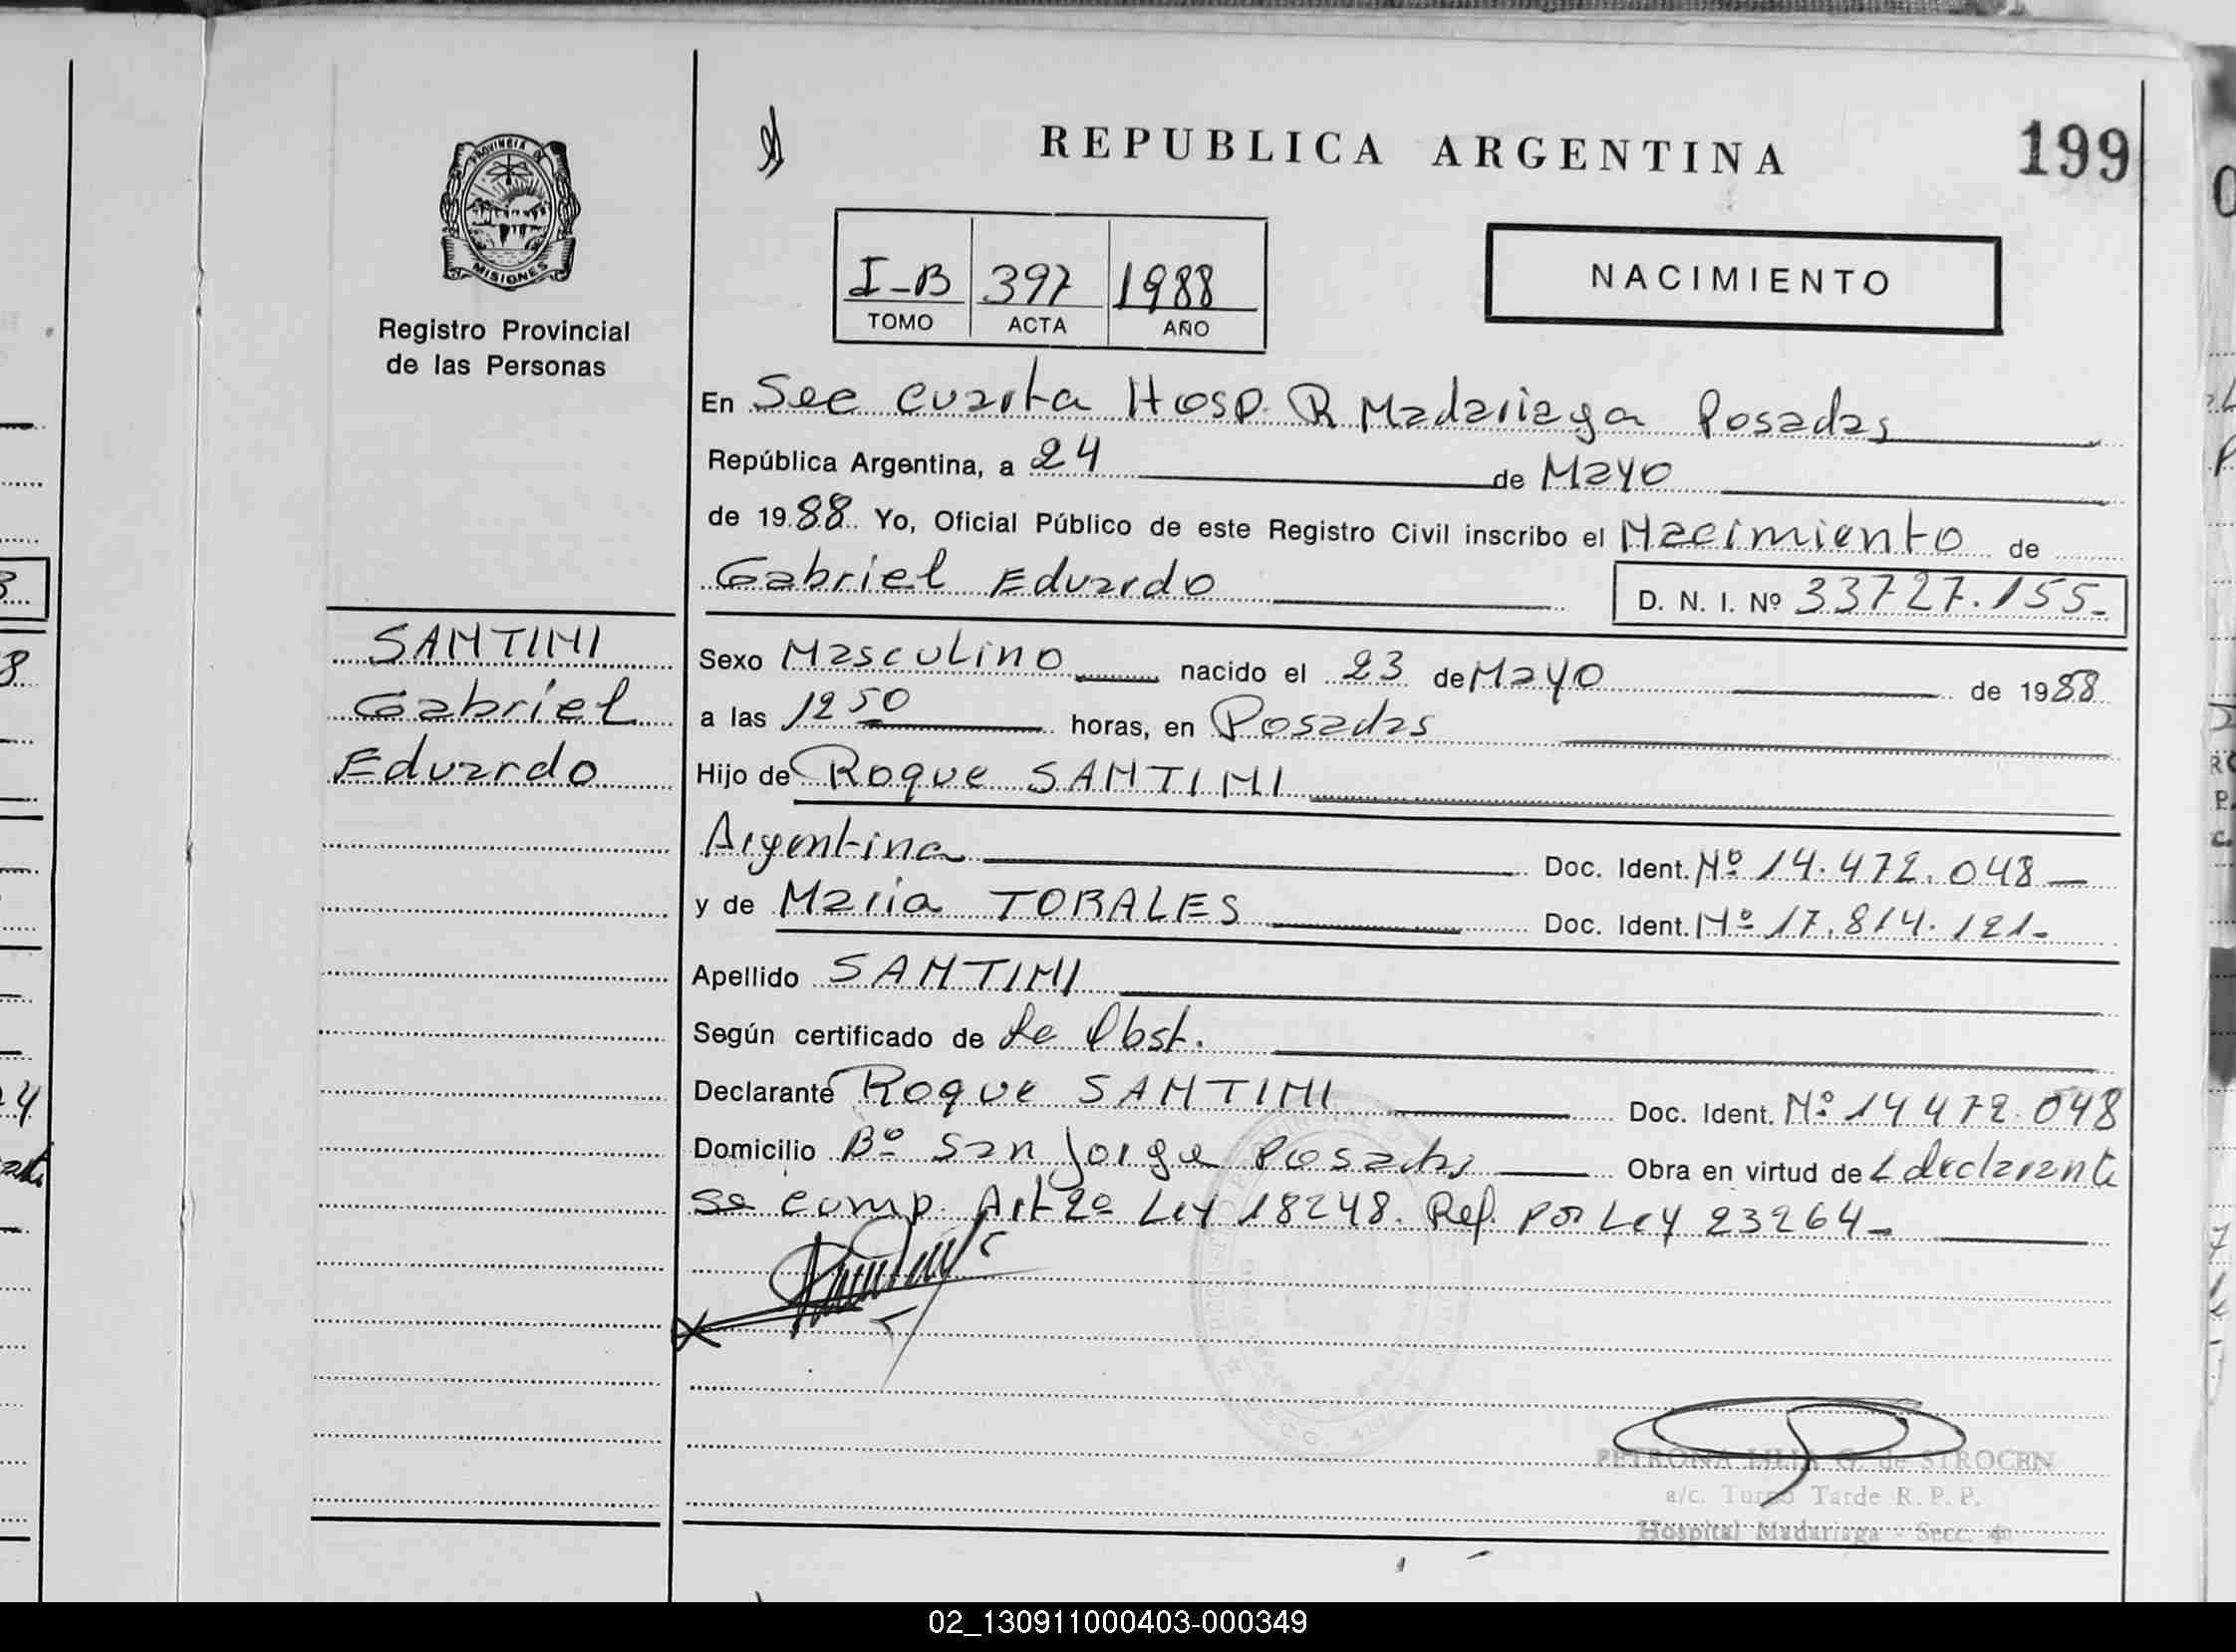 REPUBLICA ARGENTINA
199
PROVINCIA DE MISIONES
Registro Provincial
de las Personas
I-B 397 1988
TOMO ACTA AÑO
NACIMIENTO
En Sec cuarta Hosp. R Madariaga Posadas
República Argentina, a 24 de Mayo
de 1988 Yo, Oficial Público de este Registro Civil inscribo el Nacimiento de
Gabriel Eduardo
D. N. I. Nº 33727.155-
SANTINI
Gabriel
Eduardo
Sexo Masculino nacido el 23 de Mayo de 1988
a las 12 50 horas, en Posadas
Hijo de Roque SANTINI
Argentina Doc. Ident. Nº 14.472.048
y de Maria TORALES Doc. Ident. Nº 17.814.121-
Apellido SANTINI
Según certificado de de Obst.
Declarante Roque SANTINI Doc. Ident. Nº 14 472 048
Domicilio Bº San Jorge Posadas Obra en virtud de L declarante
se comp. Art 2º Ley 18248. Ref. por Ley 23264-
PETRONA LILIA G. de STROCEN
a/c. Turno Tarde R. P. P.
Hospital Madariaga - Secc. 4ª
02_130911000403-000349